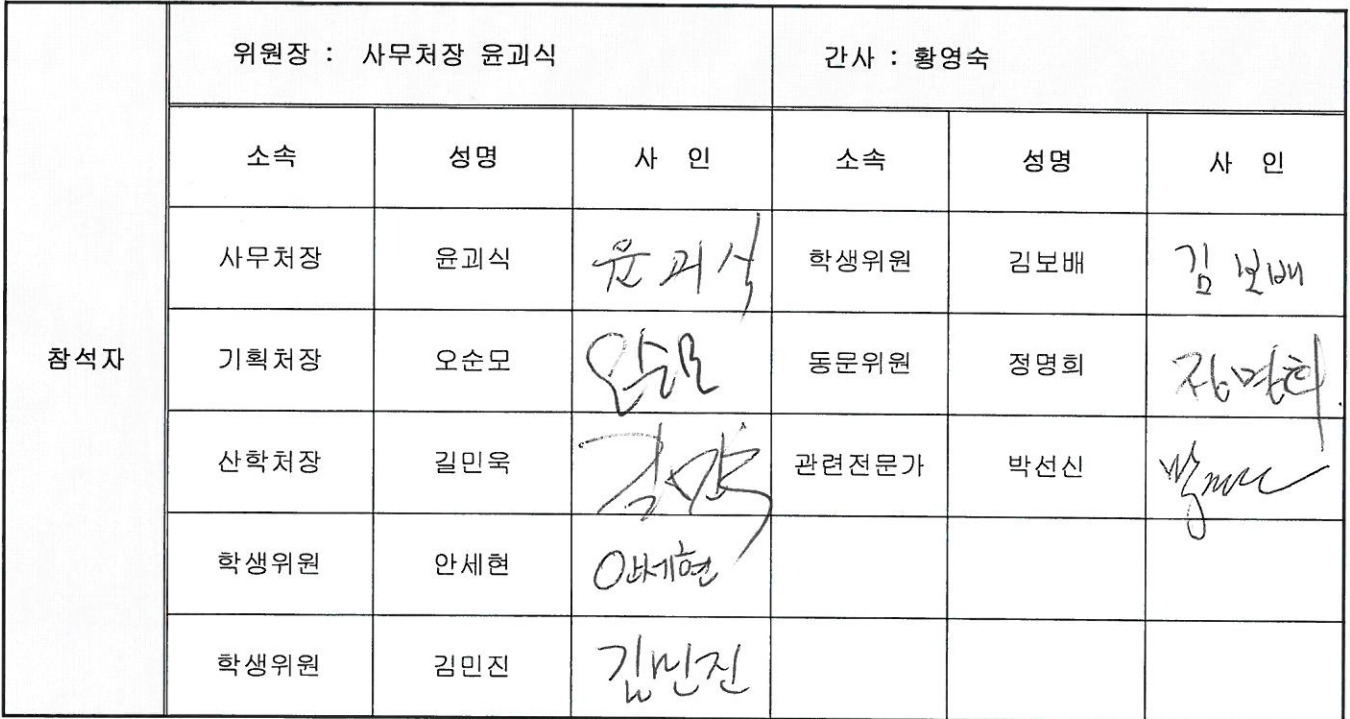 위원장 : 사무처장 윤괴식 간사 : 황영숙
소속 성명 사 인 소속 성명 사 인
사무처장 윤괴식 윤괴식 학생위원 김보배 김보배
참석자 기획처장 오순모 오순모 동문위원 정명희 정명희
산학처장 길민욱 관련전문가 박선신
학생위원 안세현 안세현
학생위원 김민진 김민진